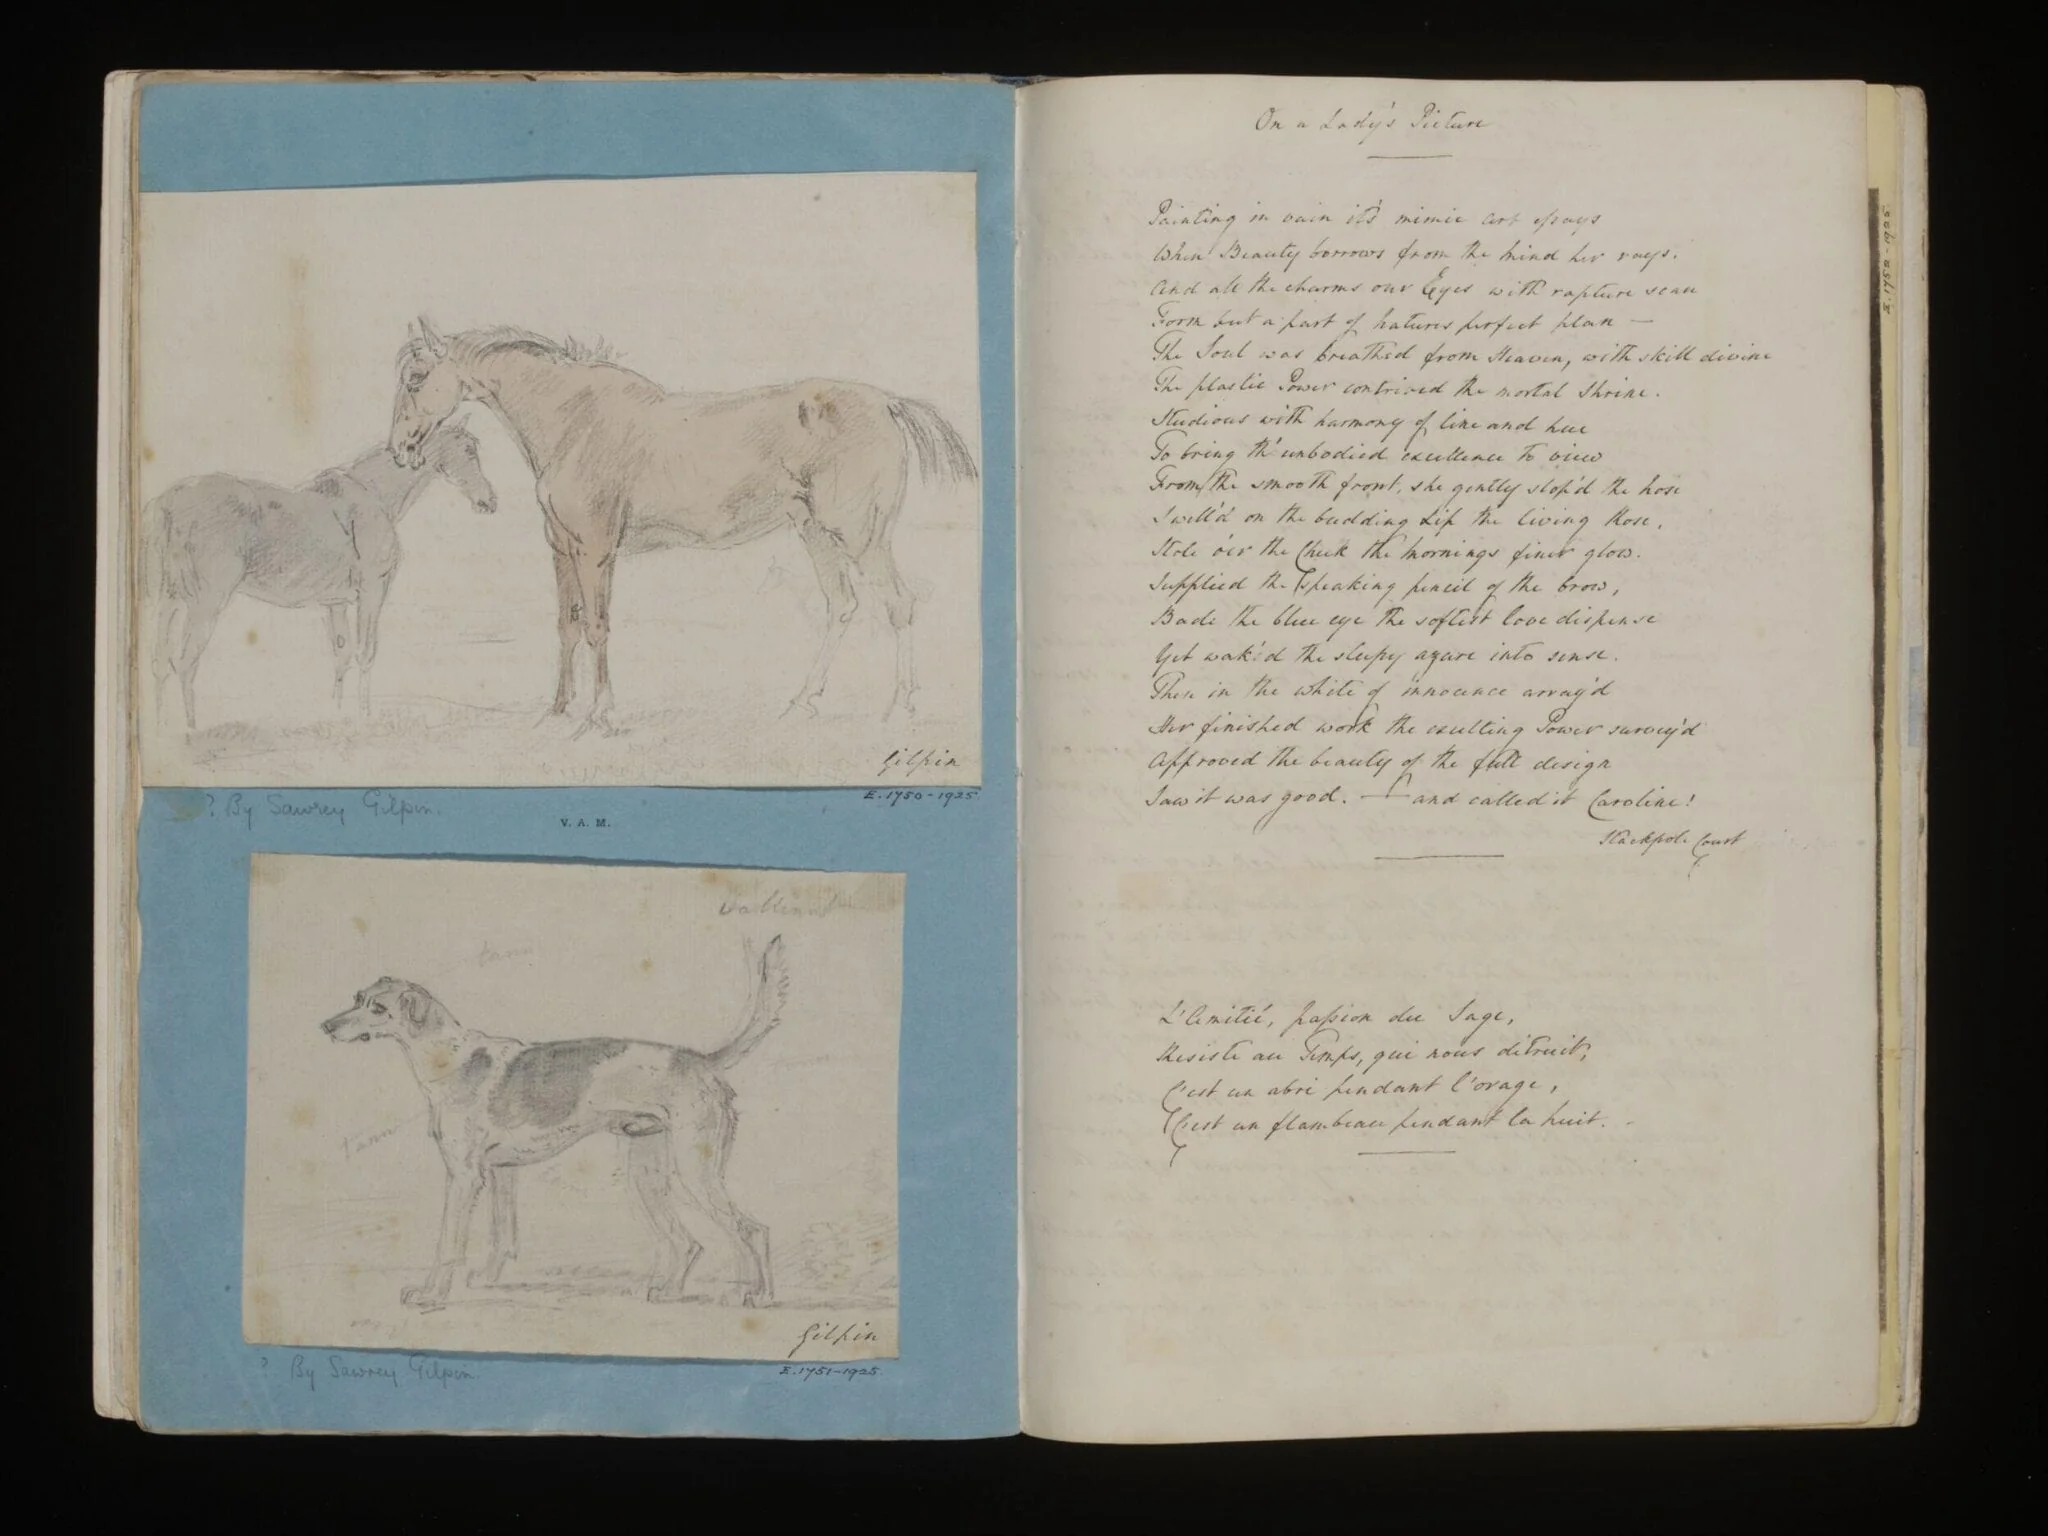 Gilpin
? By Sawrey Gilpin.
E.1750-1925
V. A. M.
tann
tann
Gilpin
? By Sawrey Gilpin
E.1751-1925
On a Lady's Picture
Painting in vain it's mimic art essays
When Beauty borrows from the mind her rays.
And all the charms our Eyes with rapture scan
Form but a part of natures perfect plan —
The Soul was breathed from Heaven, with skill divine
The plastic Power contrived the mortal Shrine.
Studious with harmony of line and hue
To bring th' unbodied excellence to view
From the smooth front, she gently slop'd the nose
Swell'd on the budding Lip the living Rose,
Stole o'er the Cheek the mornings finer glow.
Supplied the speaking pencil of the brow,
Bade the blue eye the softest love dispense
Yet wak'd the sleepy azure into sense.
Then in the white of innocence array'd
Her finished work the exulting Power survey'd
Approved the beauty of the full design
Saw it was good. — and called it Caroline!
Stackpole Court
L'Amitié, passion du Sage,
Résiste au Temps, qui nous détruit,
C'est un abri pendant l'orage,
C'est un flambeau pendant la nuit.
E.1752-1925